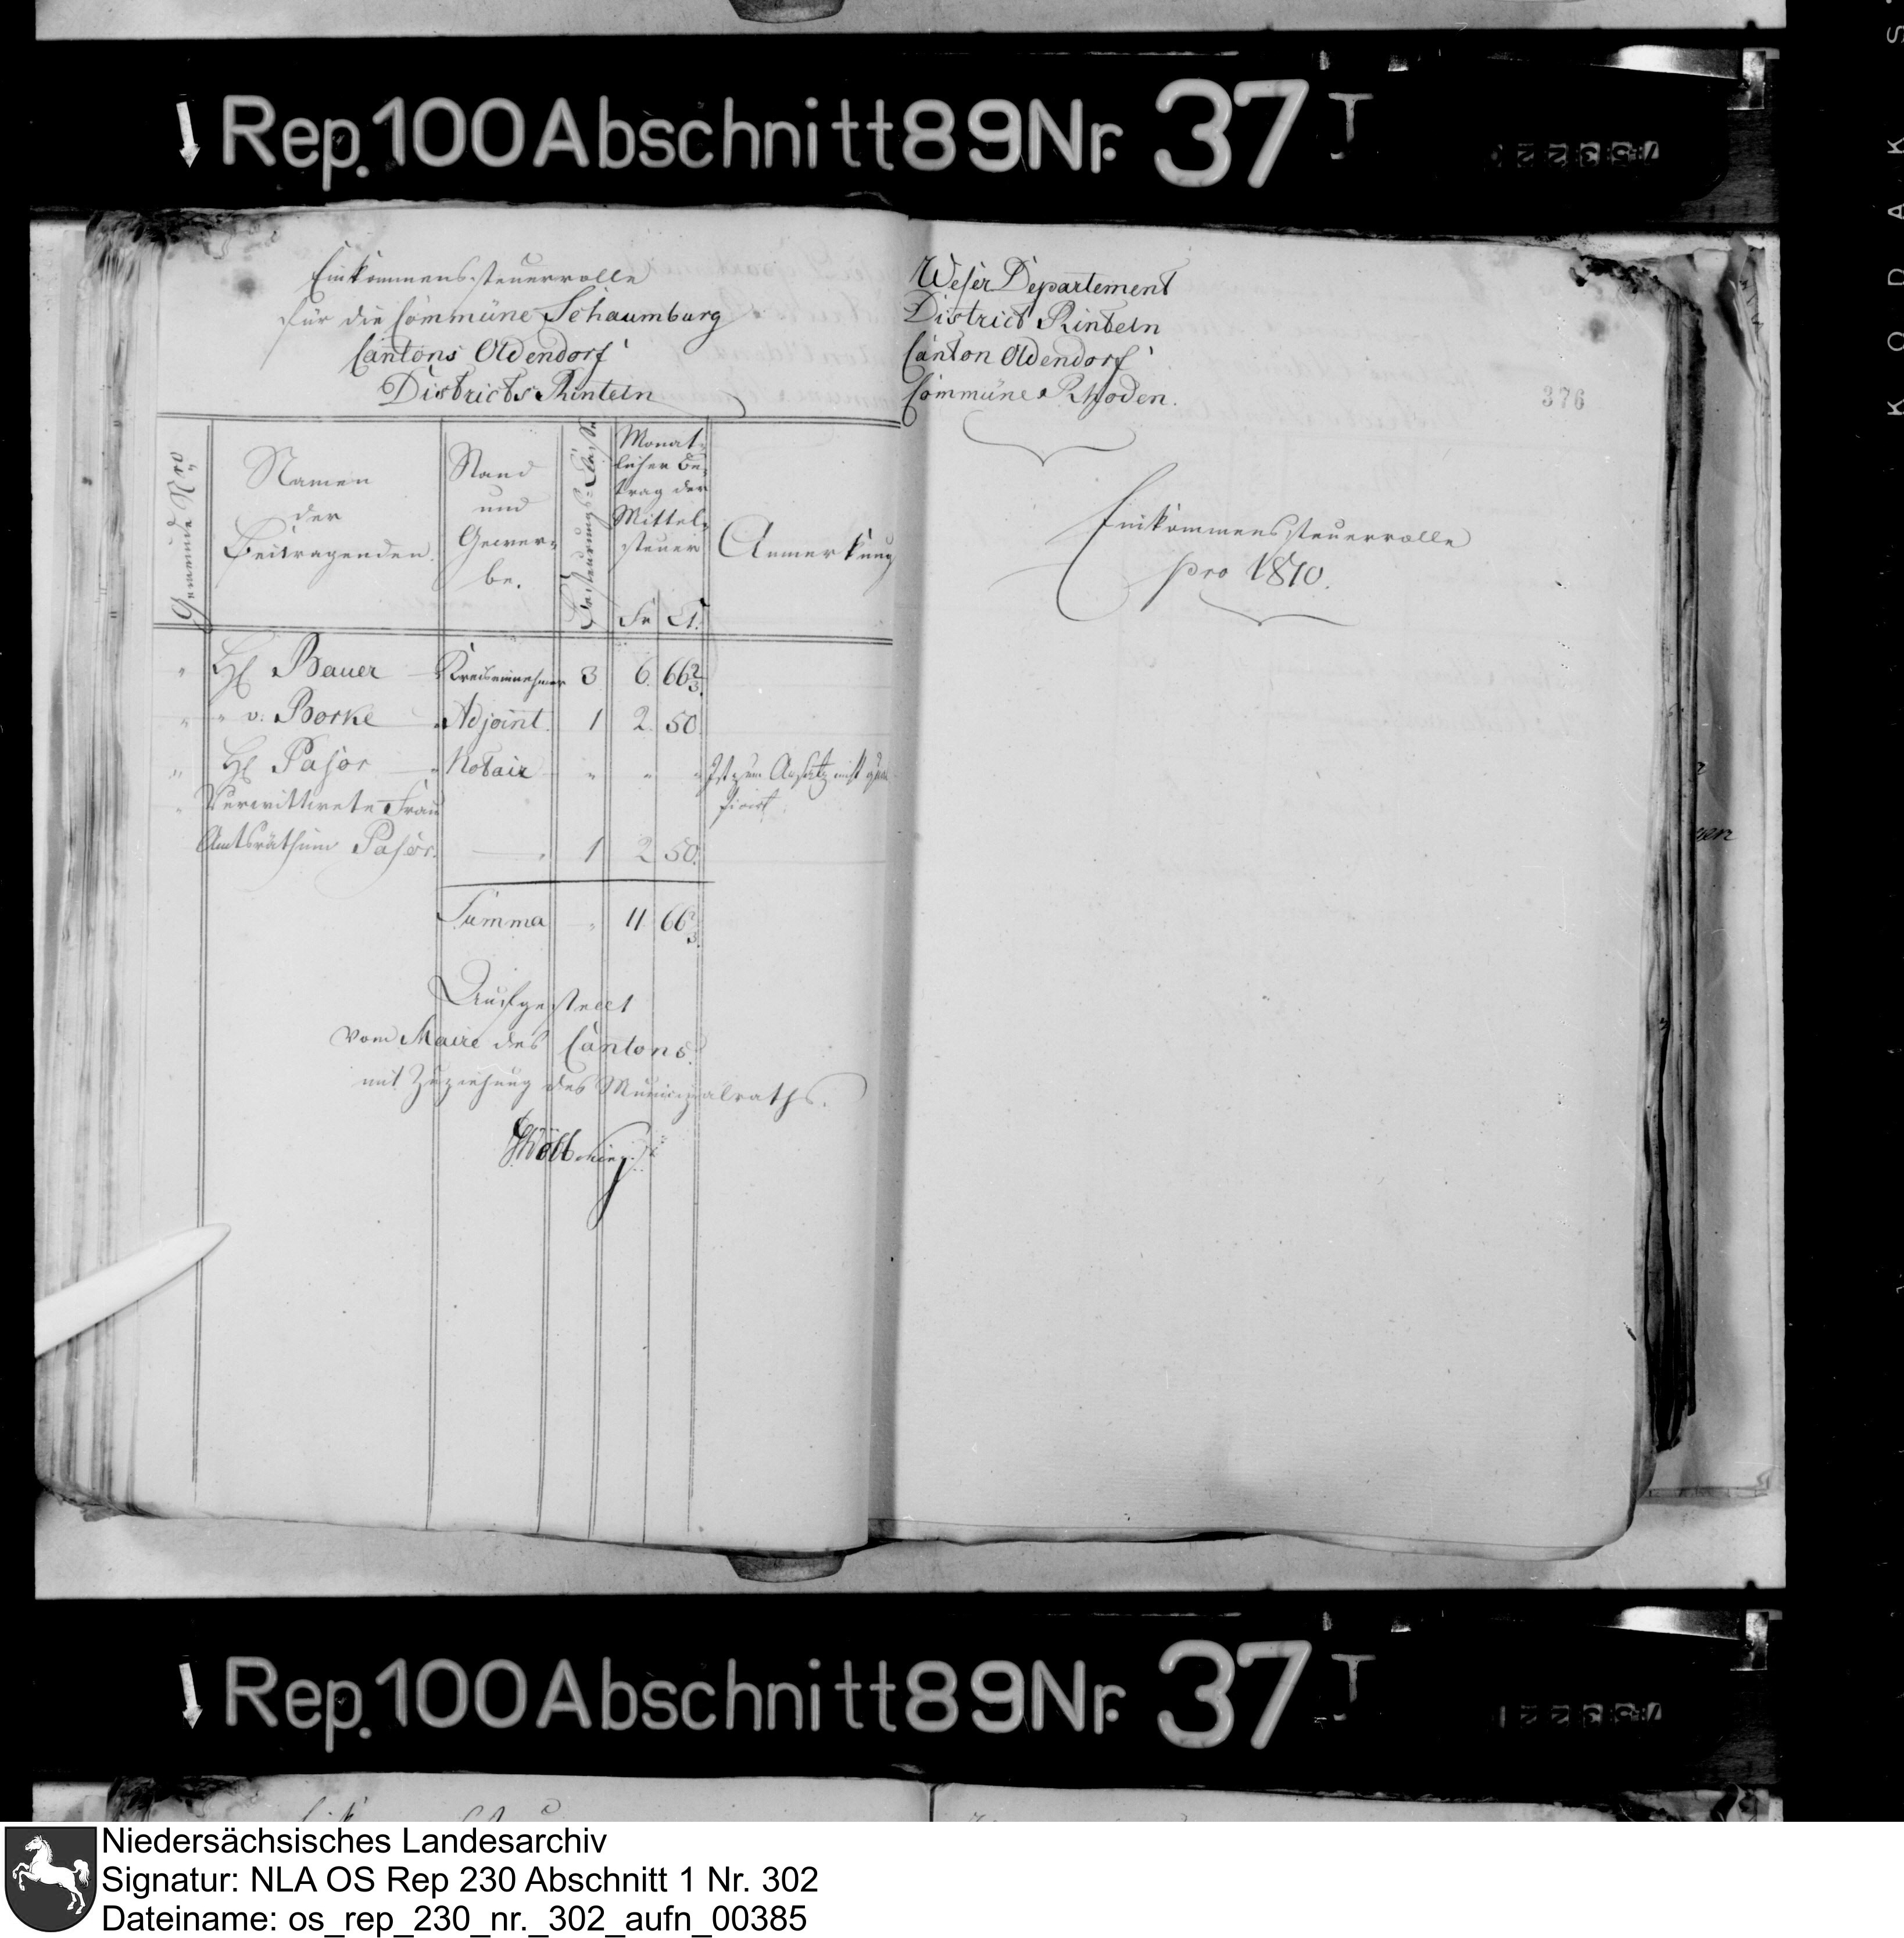 Rep. 100 Abschnitt 89 Nr. 37 I
Einkommenssteuerrolle
für die Commüne Schaumburg
Cantons Oldendorf
Districts Rinteln
Gemeinde Nro
Namen
der
Beitragenden.
Stand
und
Gewer-
be.
Besteurungs-Classe
Monat-
licher Be-
trag der
Mittel-
steuer
Fr Ct.
Anmerkung
" H. Bauer Kreiseinnehmer 3 6. 66 2/3
" " v. Borke Adjoint. 1 2. 50
" H. Pasor Notair " " " Ist zum Ansatz nicht quali
ficirt
" Verwittwete Frau
Amtsräthinn Pasor. 1 2 50.
Summa " 11 66 2/3
Aufgestellt
Vom Maire des Cantons.
mit Zuziehung des Municipalraths.
Weser Departement
District Rinteln
Canton Oldendorf
Commüne Rhoden.
376
Einkommenssteuerrolle
pro 1810.
Rep. 100 Abschnitt 89 Nr. 37 I
KODAK S
Niedersächsisches Landesarchiv
Signatur: NLA OS Rep 230 Abschnitt 1 Nr. 302
Dateiname: os_rep_230_nr._302_aufn_00385